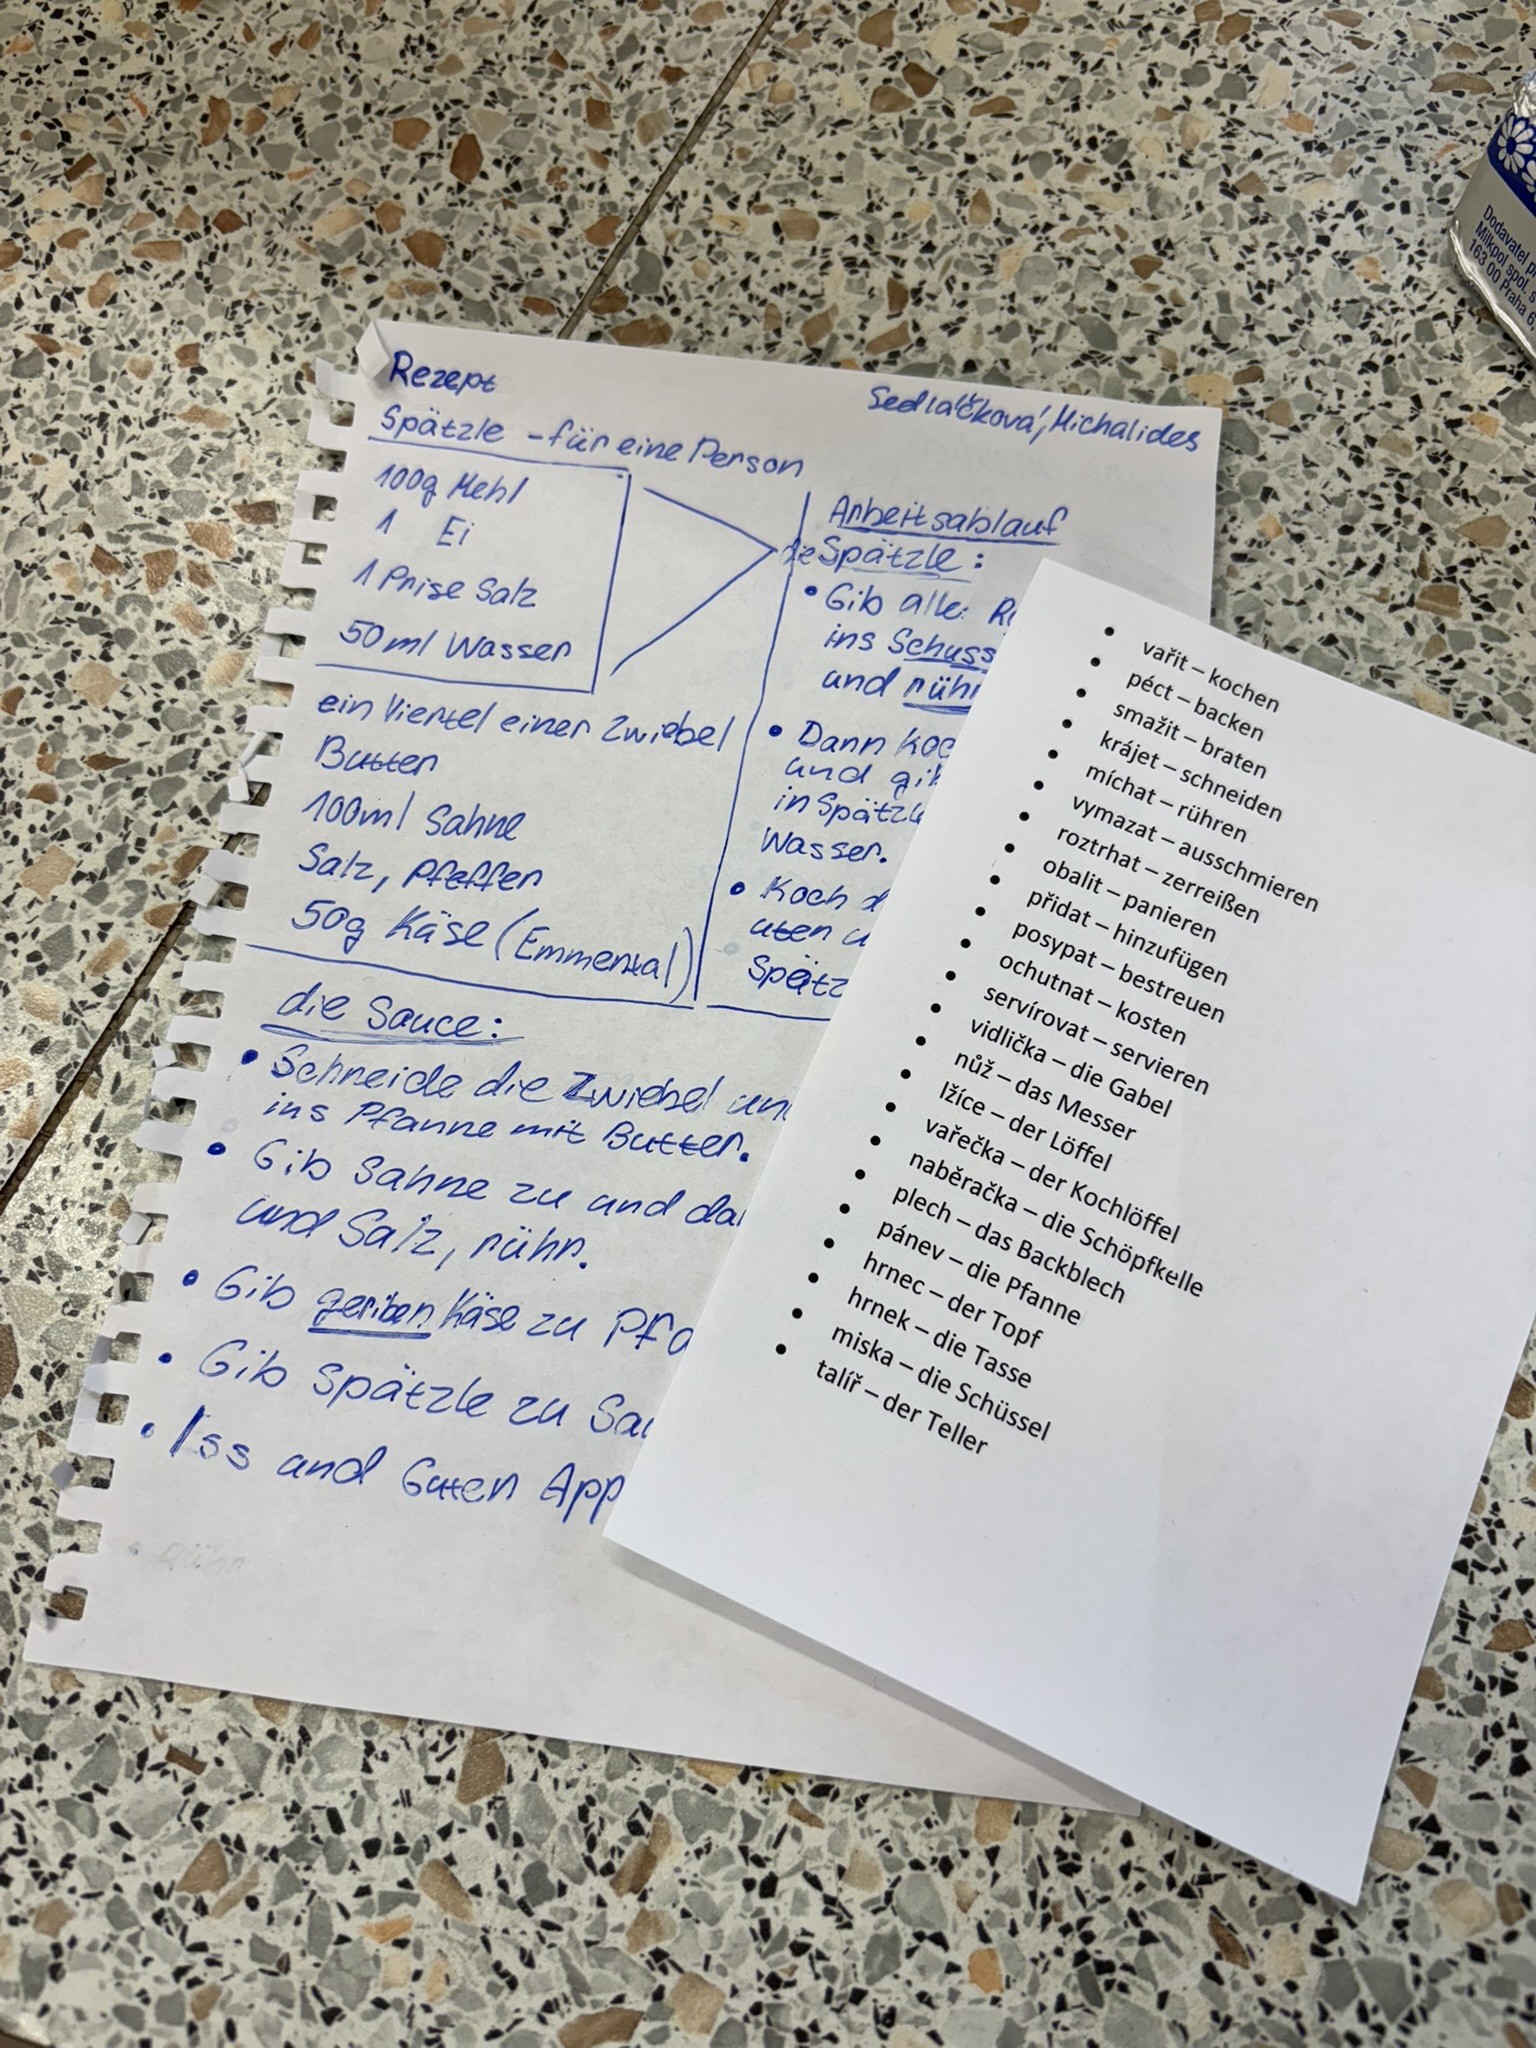 Rezept
Sedláčková, Michalides
Spätzle - für eine Person
100g Mehl
1 Ei
1 Prise Salz
50ml Wasser
ein Viertel einer Zwiebel
Butter
100ml Sahne
Salz, Pfeffer
50g Käse (Emmental)
Arbeitsablauf
die Spätzle:
• Gib alle
ins Schuss
und rühr
• Dann Koc
und gib
in Spätzle
Wasser.
• Koch d
uten u
Spätz
die Sauce:
• Schneide die Zwiebel und
ins Pfanne mit Butter.
• Gib Sahne zu und da
und Salz, rühr.
• Gib geriben Käse zu Pfa
• Gib Spätzle zu Sau
• Iss und Guten App
• vařit – kochen
• péct – backen
• smažit – braten
• krájet – schneiden
• míchat – rühren
• vymazat – ausschmieren
• roztrhat – zerreißen
• obalit – panieren
• přidat – hinzufügen
• posypat – bestreuen
• ochutnat – kosten
• servírovat – servieren
• vidlička – die Gabel
• nůž – das Messer
• lžíce – der Löffel
• vařečka – der Kochlöffel
• naběračka – die Schöpfkelle
• plech – das Backblech
• pánev – die Pfanne
• hrnec – der Topf
• hrnek – die Tasse
• miska – die Schüssel
• talíř – der Teller
Dodavatel
Milkpol spol. s
163 00 Praha 6